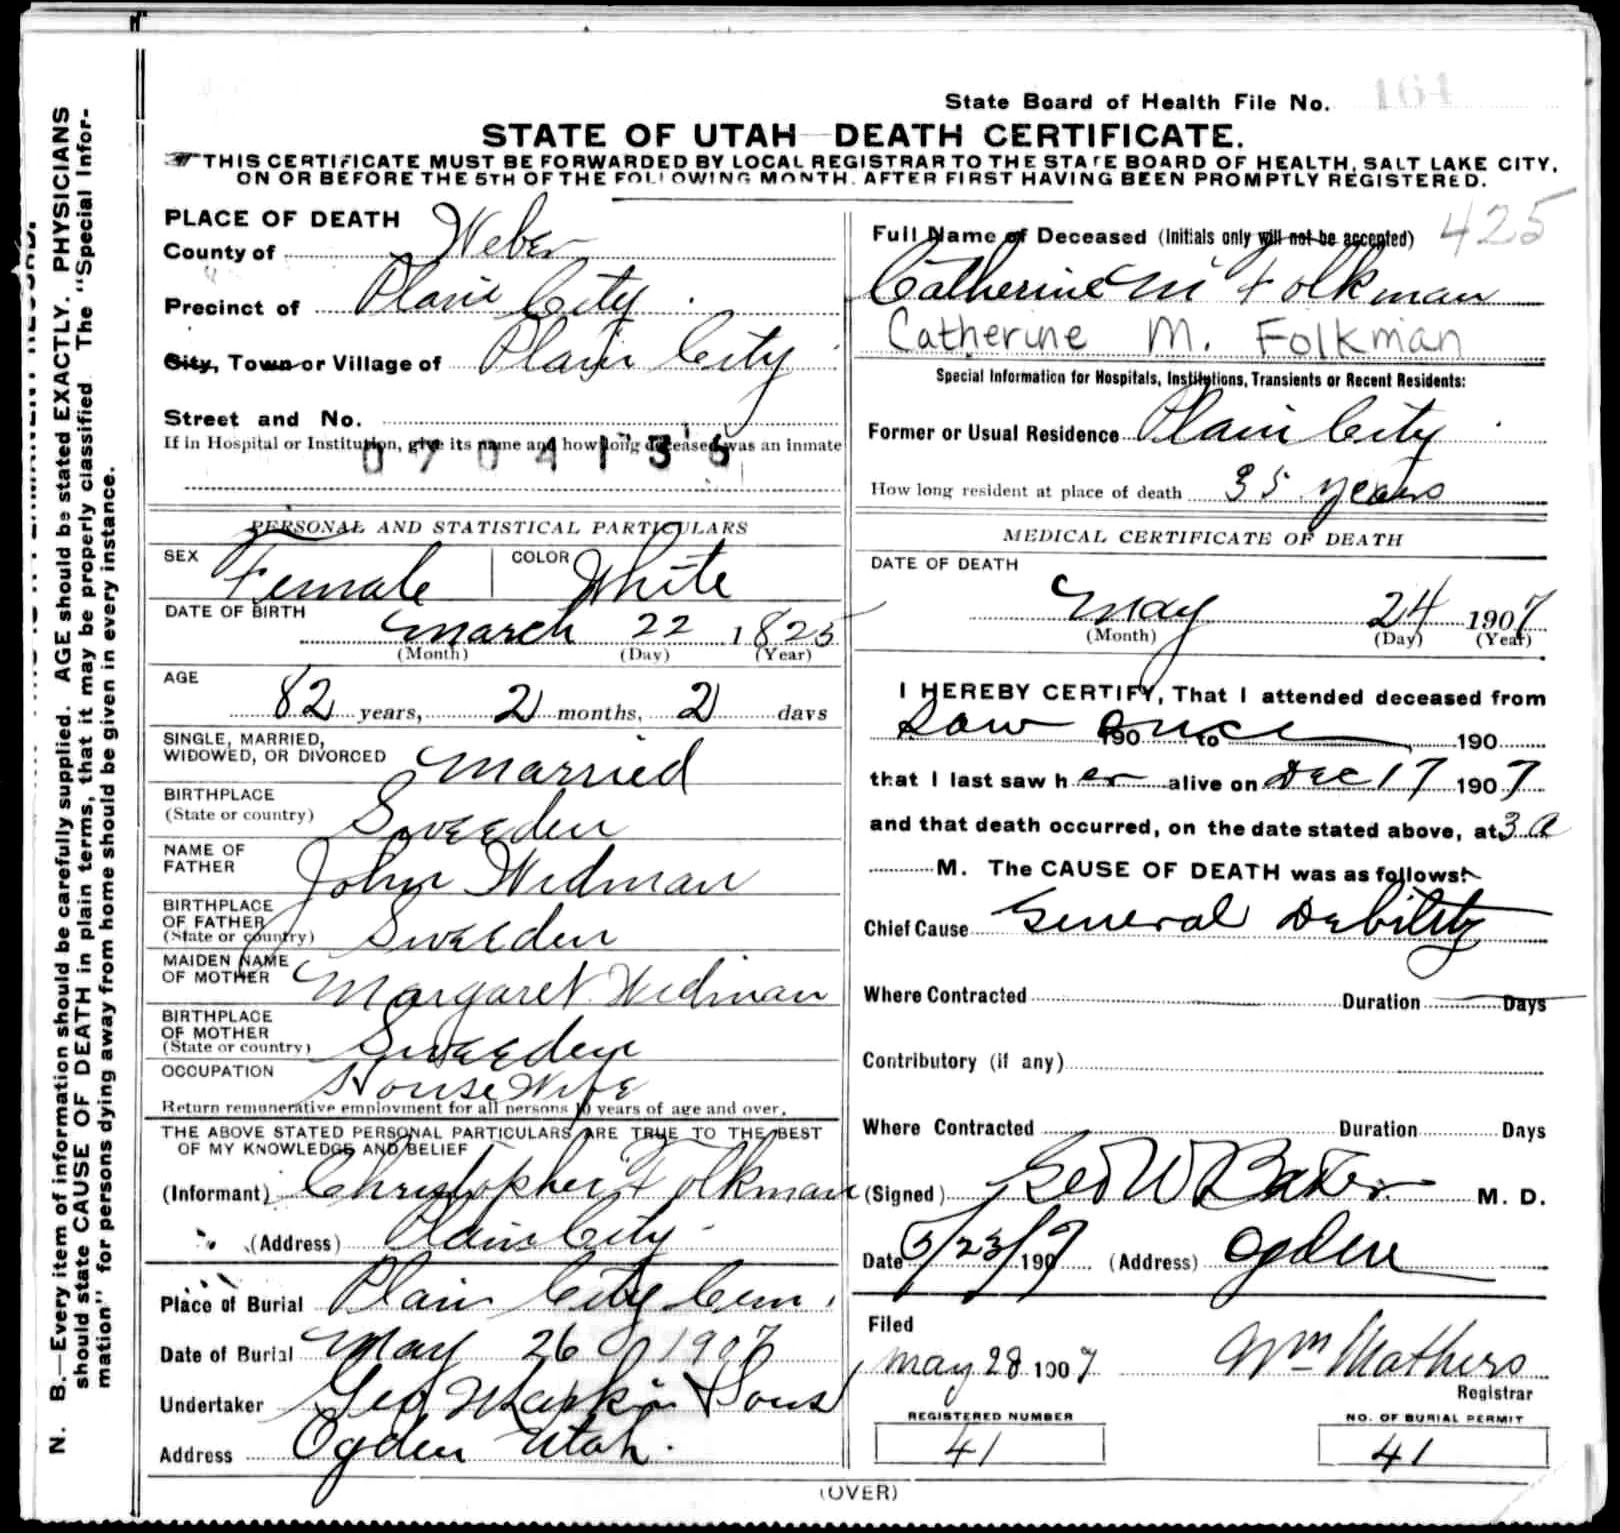 State Board of Health File No. 161
STATE OF UTAH—DEATH CERTIFICATE.
THIS CERTIFICATE MUST BE FORWARDED BY LOCAL REGISTRAR TO THE STATE BOARD OF HEALTH, SALT LAKE CITY,
ON OR BEFORE THE 5TH OF THE FOLLOWING MONTH. AFTER FIRST HAVING BEEN PROMPTLY REGISTERED.
PLACE OF DEATH
County of Weber
Precinct of Plain City
City, Town or Village of Plain City
Street and No.
If in Hospital or Institution, give its name and how long deceased was an inmate
0704136
PERSONAL AND STATISTICAL PARTICULARS
SEX Female COLOR White
DATE OF BIRTH
March 22 1825
(Month) (Day) (Year)
AGE
82 years, 2 months, 2 days
SINGLE, MARRIED,
WIDOWED, OR DIVORCED Married
BIRTHPLACE
(State or country) Sweeden
NAME OF
FATHER John Widman
BIRTHPLACE
OF FATHER
(State or country) Sweeden
MAIDEN NAME
OF MOTHER Margaret Widman
BIRTHPLACE
OF MOTHER
(State or country) Sweeden
OCCUPATION House Wife
Return remunerative employment for all persons 10 years of age and over.
THE ABOVE STATED PERSONAL PARTICULARS ARE TRUE TO THE BEST
OF MY KNOWLEDGE AND BELIEF
(Informant) Christopher Folkman
(Address) Plain City
Place of Burial Plain City Cem.
Date of Burial May 26 1907
Undertaker Geo Larkin & Sons
Address Ogden Utah.
425
Full Name of Deceased (Initials only will not be accepted)
Catherine M Folkman
Catherine M. Folkman
Special Information for Hospitals, Institutions, Transients or Recent Residents:
Former or Usual Residence Plain City
How long resident at place of death 35 years
MEDICAL CERTIFICATE OF DEATH
DATE OF DEATH
May 24 1907
(Month) (Day) (Year)
I HEREBY CERTIFY, That I attended deceased from
Saw once 190 to 190
that I last saw her alive on Dec 17 1907
and that death occurred, on the date stated above, at 3 a
M. The CAUSE OF DEATH was as follows:
Chief Cause General Debility
Where Contracted Duration Days
Contributory (if any)
Where Contracted Duration Days
(Signed) Geo W Baker M. D.
Date 5/23/1907 (Address) Ogden
Filed
May 28 1907 Wm Mathers
Registrar
REGISTERED NUMBER
41
NO. OF BURIAL PERMIT
41
(OVER)
N. B.—Every item of information should be carefully supplied. AGE should be stated EXACTLY. PHYSICIANS
should state CAUSE OF DEATH in plain terms, that it may be properly classified. The "Special Infor-
mation" for persons dying away from home should be given in every instance.